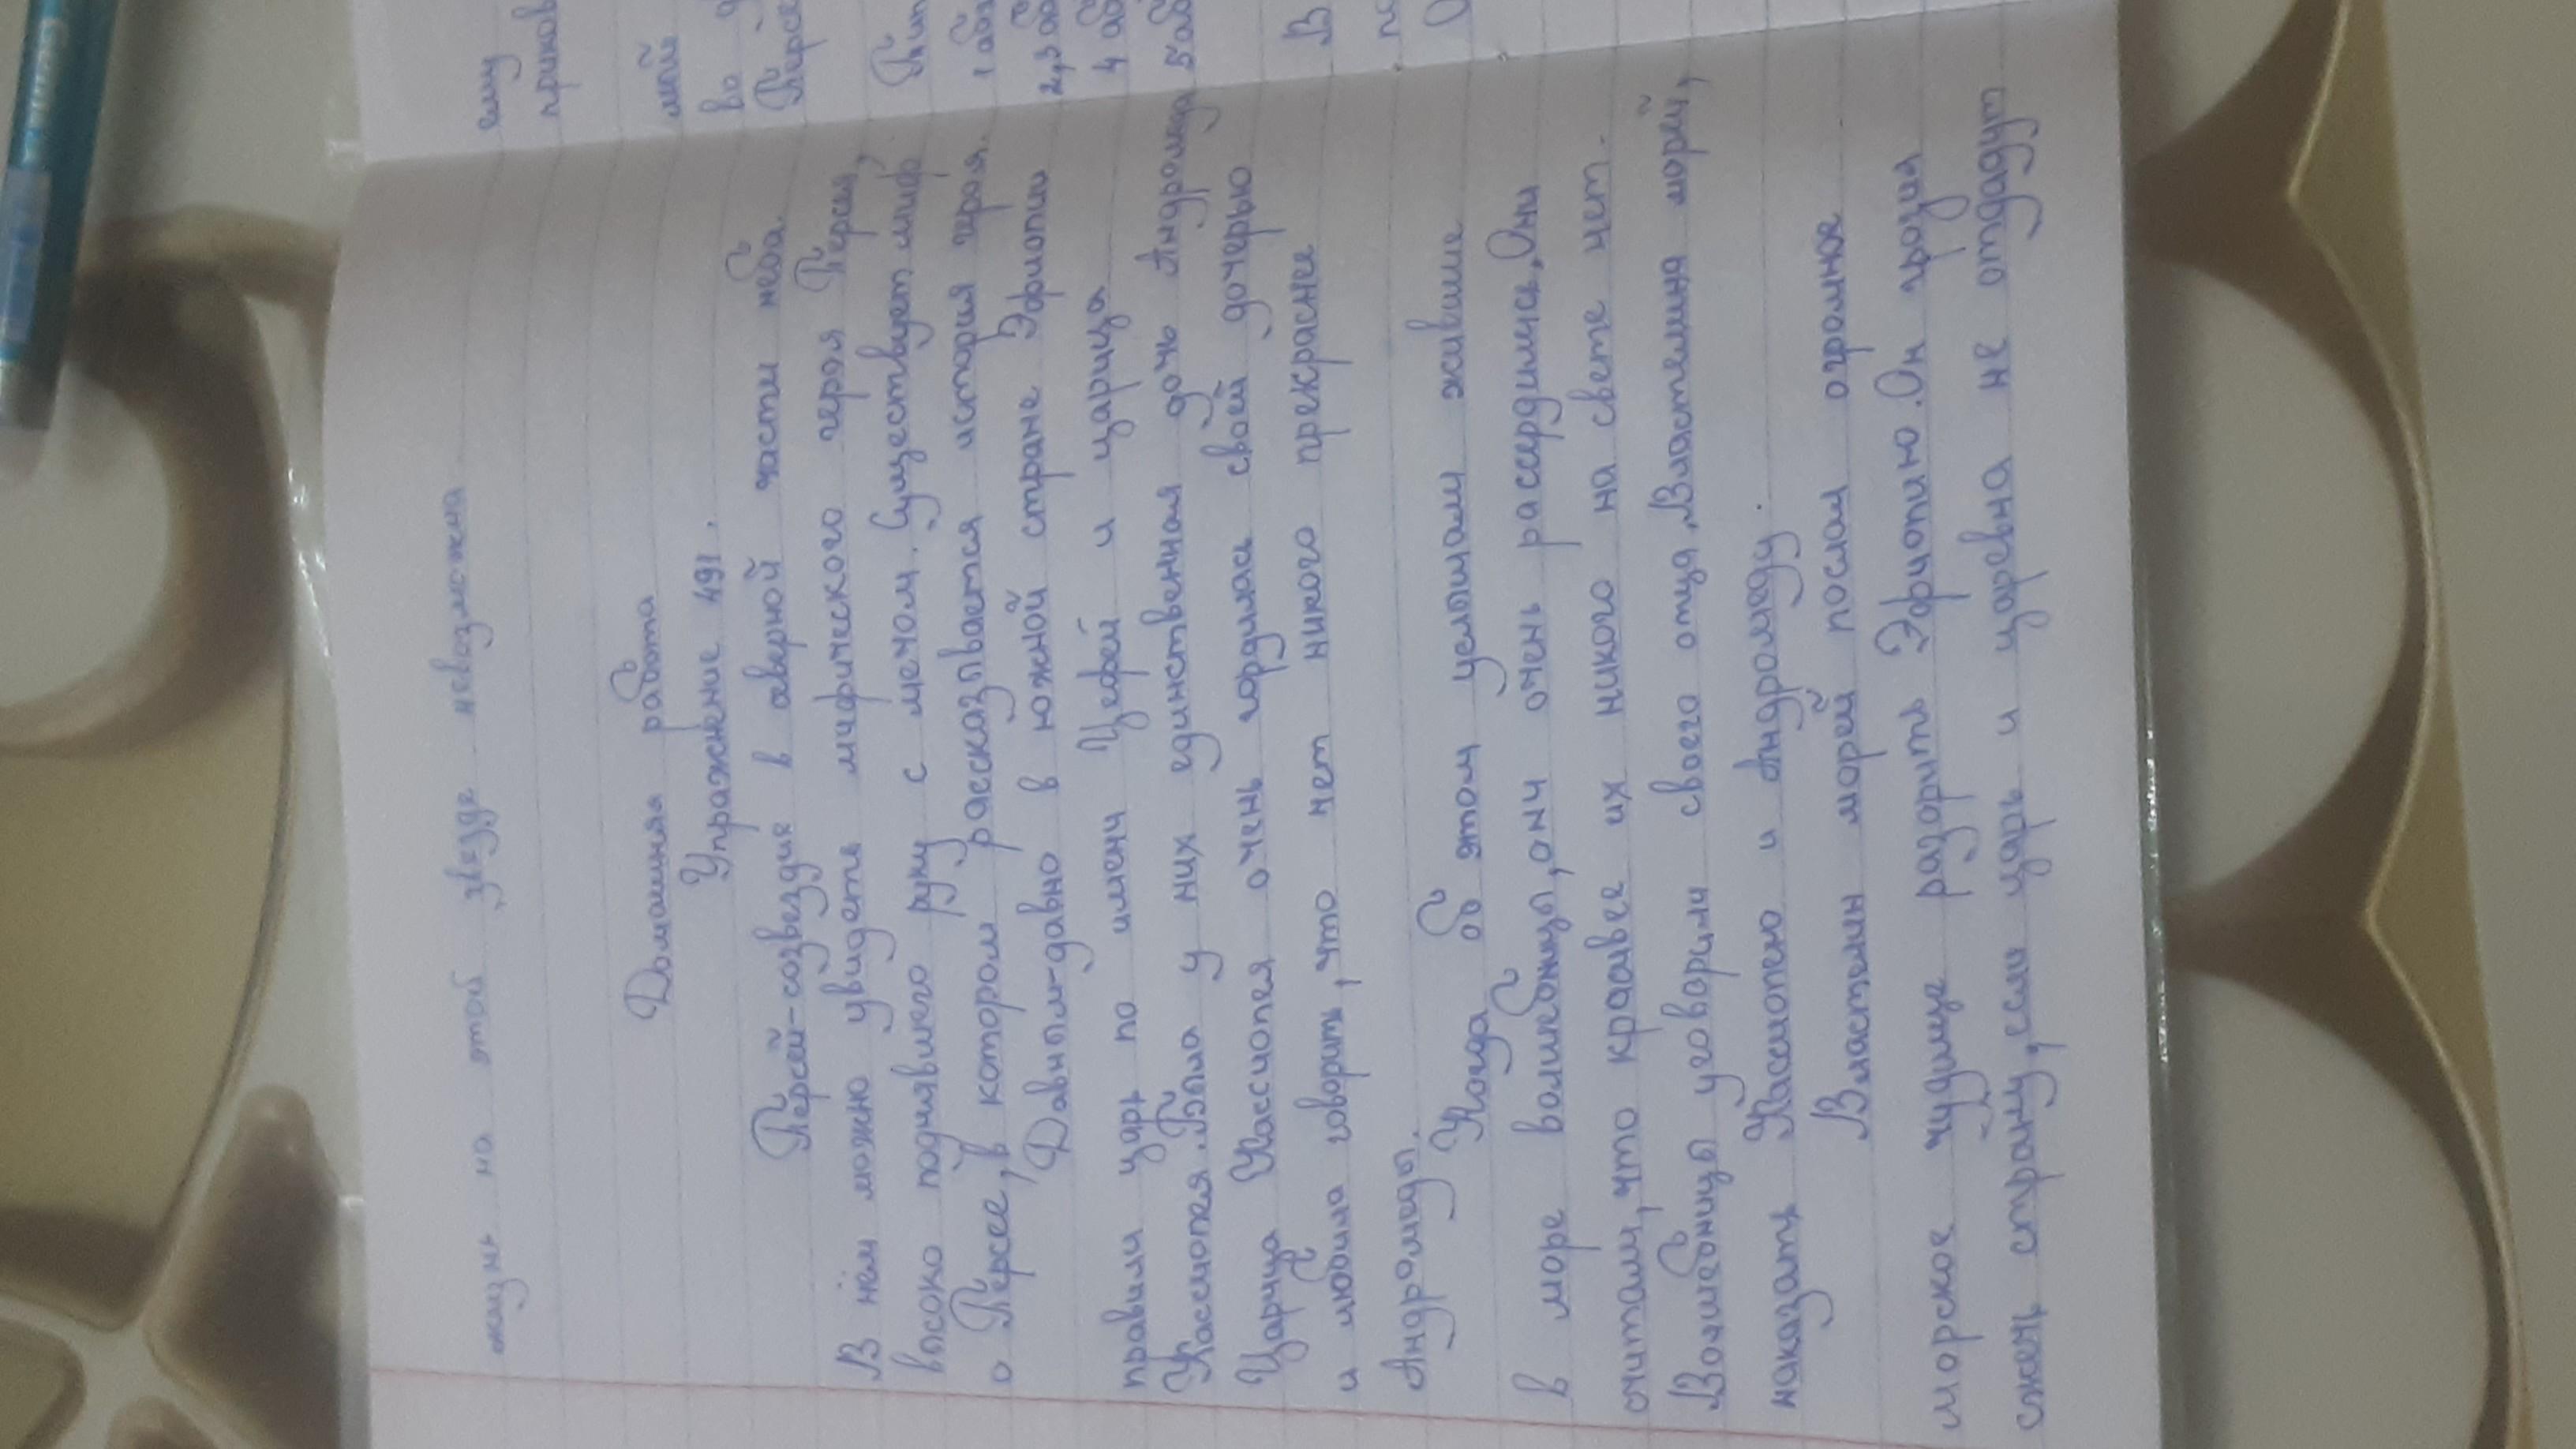 жизнь на этой звезде невозможна
Домашняя работа
Упражнение 491.
Персей-созвездие в северной части неба.
В нём можно увидеть мифического героя Персея,
высоко поднявшего руку с мечом. Существует миф
о Персее, в котором рассказывается история героя.
Давным-давно в южной стране Эфиопии
правили царь по имени Цефей и царица
Кассиопея. Была у них единственная дочь Андромеда
Царица Кассиопея очень гордилась своей дочерью
и любила говорить, что нет никого прекраснее
Андромеды.
Когда об этом услышали жившие
в море волшебницы, они очень рассердились. Они
считали, что красивее их никого на свете нет.
Волшебницы уговорили своего отца, Властелина морей,
наказать Кассиопею и Андромеду.
Властелин морей послал огромное
морское чудище разорить Эфиопию. Он грозил
сжечь страну, если царь и царевна не отдадут
ему
приков
мой
во
Персе
Тип
1 абз
2,3 аб
4 аб
5 аб
В